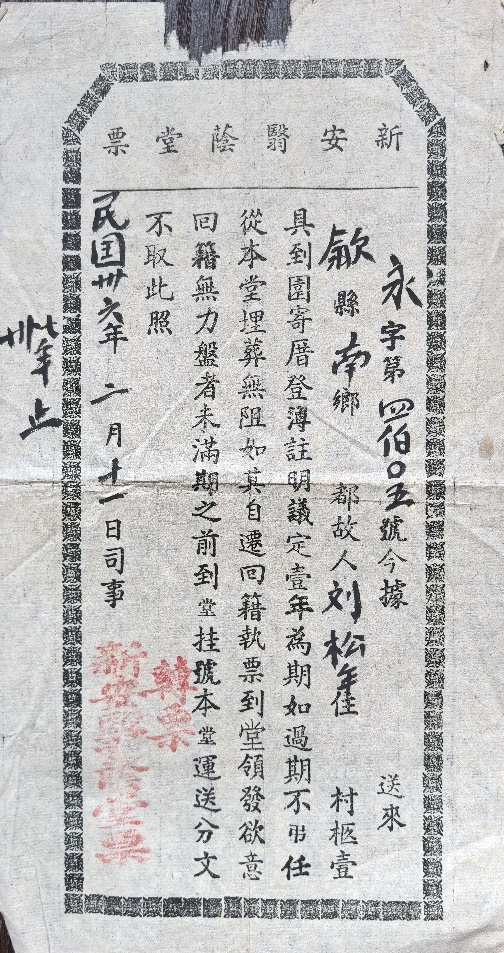 新安翳蔭堂票
永字第四佰○五號今據　送來
歙縣南鄉　都故人刘松年住　村柩壹
具到園寄厝登簿註明議定壹年為期如過期不弔任
從本堂埋葬無阻如其自遷回籍執票到堂領發欲意
回籍無力盤者未滿期之前到堂挂號本堂運送分文
不取此照
民国卅六年二月十一日司事
卅七年止
轉票
新安翳蔭堂票